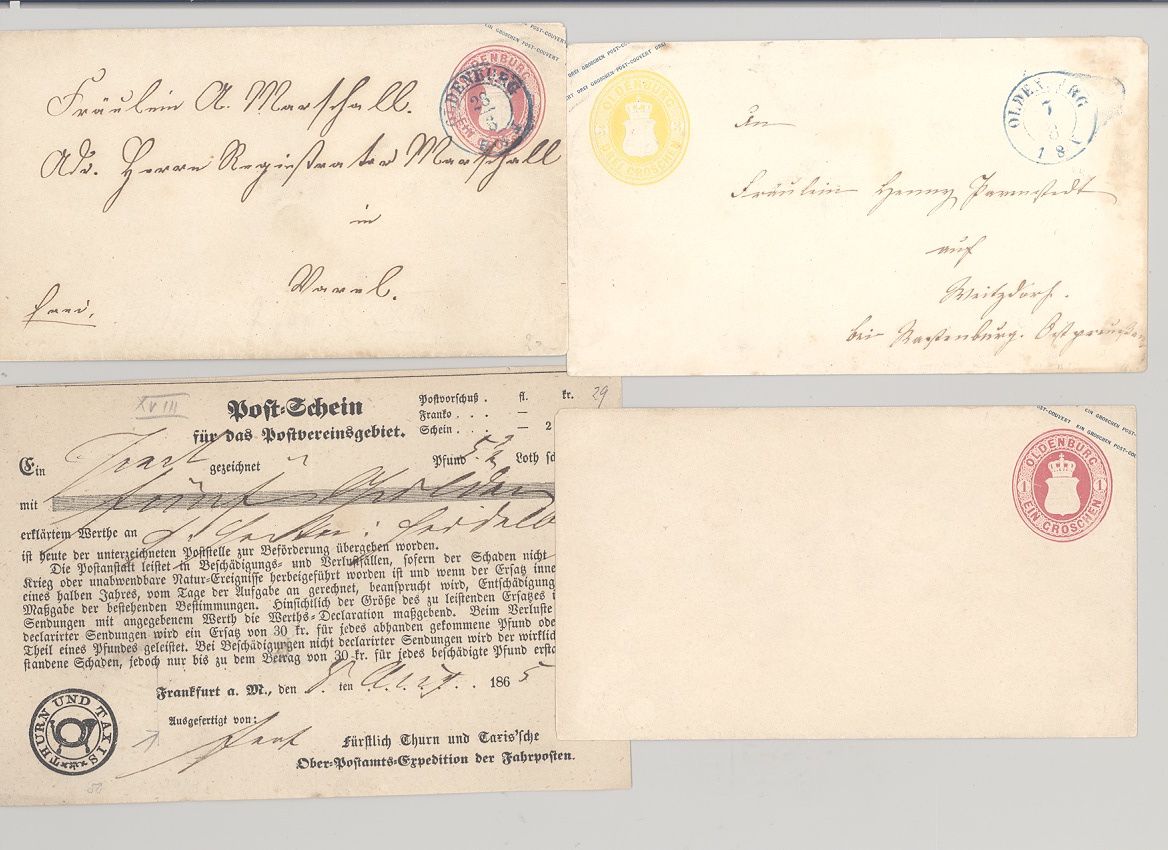 EIN GROSCHEN POST-COUVERT
OLDENBURG
EIN GROSCHEN
OLDENBURG
28
8
Fräulein A. Marschall.
Adr. Herrn Registrator Marschall
in
Varel.
frei.
DREI GROSCHEN POST-COUVERT DREI
DREI GROSCHEN POST-COUVERT
OLDENBURG
3 3
DREI GROSCHEN
OLDENBURG
7
8
An
Fräulein Henny
auf
Weitzdorf.
bei Rastenburg. Ostpreußen
XVIII
29
Post-Schein
für das Postvereinsgebiet.
Postvorschuß . fl. kr.
Franko . . . —
Schein . . . — 2
Ein gezeichnet Pfund 5 Loth sch
mit
erklärtem Werthe an
ist heute der unterzeichneten Poststelle zur Beförderung übergeben worden.
Die Postanstalt leistet in Beschädigungs- und Verlustfällen, sofern der Schaden nicht
Krieg oder unabwendbare Natur-Ereignisse herbeigeführt worden ist und wenn der Ersatz inne
eines halben Jahres, vom Tage der Aufgabe an gerechnet, beansprucht wird, Entschädigung
Maßgabe der bestehenden Bestimmungen. Hinsichtlich der Größe des zu leistenden Ersatzes i
Sendungen mit angegebenem Werth die Werths-Declaration maßgebend. Beim Verluste
declarirter Sendungen wird ein Ersatz von 30 kr. für jedes abhanden gekommene Pfund ode
Theil eines Pfundes geleistet. Bei Beschädigungen nicht declarirter Sendungen wird der wirklich
standene Schaden, jedoch nur bis zu dem Betrag von 30 kr. für jedes beschädigte Pfund ersta
Frankfurt a. M., den 8 ten Aug. 1865
Ausgefertigt von:
Fürstlich Thurn und Taxis'sche
Ober-Postamts-Expedition der Fahrposten.
THURN UND TAXIS
POST-COUVERT EIN GROSCHEN POST-
EIN GROSCHEN POST-
OLDENBURG
1 1
EIN GROSCHEN